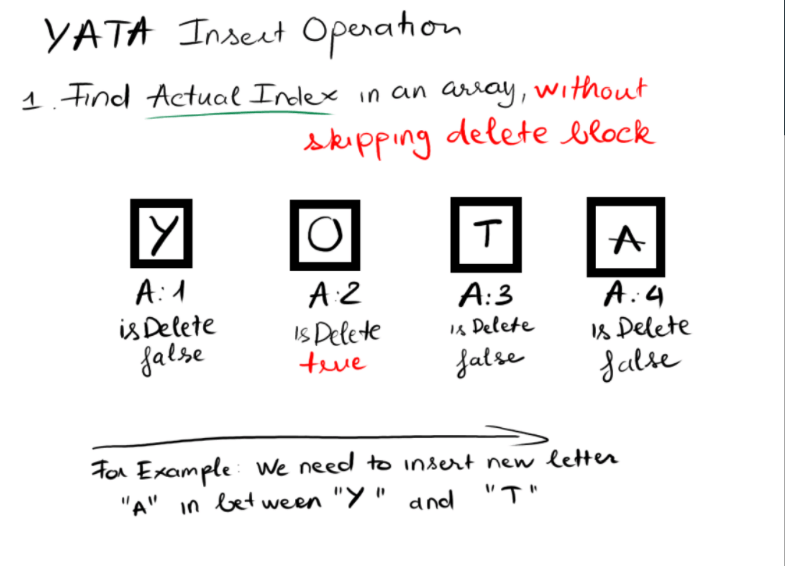 YATA Insert Operation
1. Find Actual Index in an array, without
skipping delete block
Y O T A
A:1 A:2 A:3 A:4
isDelete isDelete isDelete isDelete
false true false false
For Example: We need to insert new letter
"A" in between "Y" and "T"